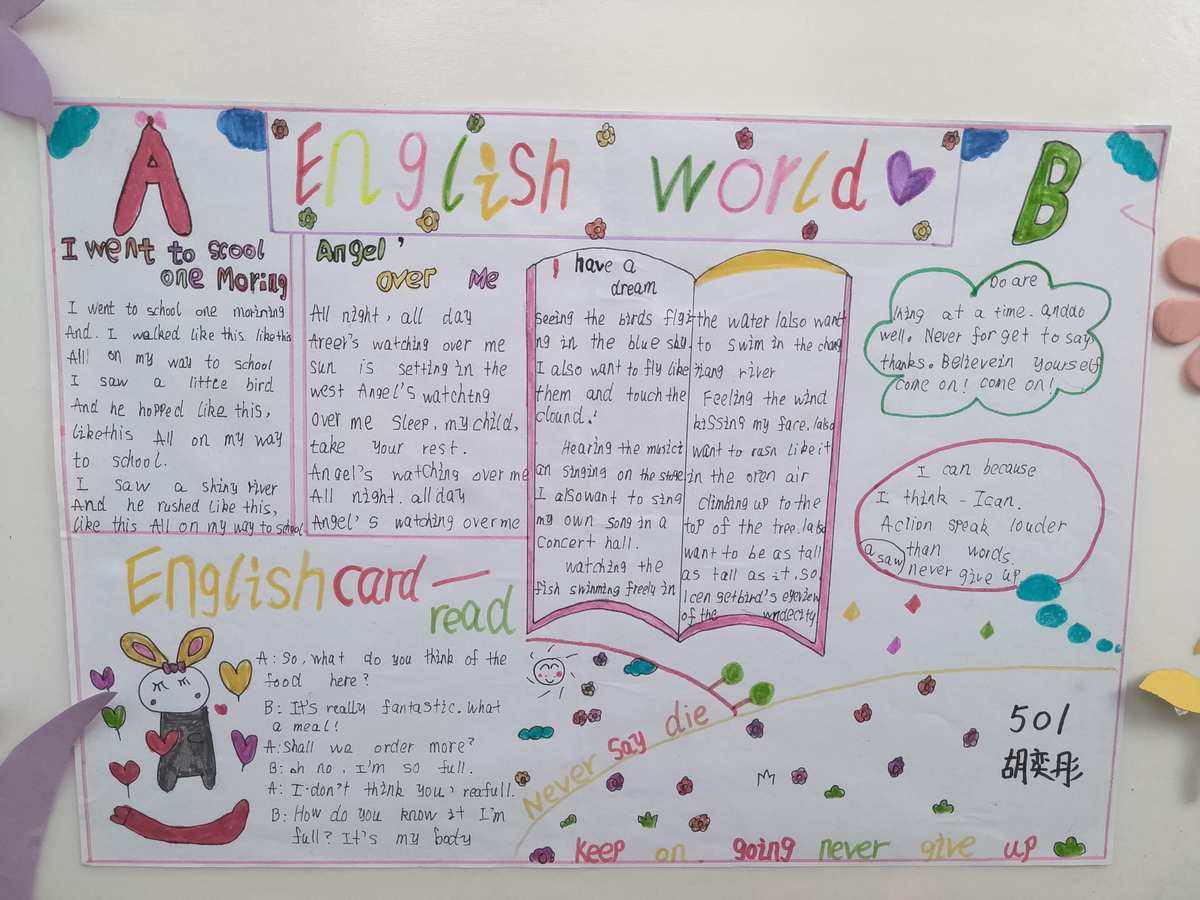 A
English world
B
I went to scool
one Moring
I went to school one morining
And. I walked like this likethis
Alll on my way to school
I saw a little bird
And he hopped like this,
likethis All on my way
to school.
I saw a shiny river
And he rushed like this,
like this All on my way to school
Angel'
over Me
All night, all day
Areel's watching over me
sun is setting in the
west Angel's watchtng
over me sleep, my child,
take your rest.
Angel's watching over me
All night. all day
Angel's watching over me
I have a
dream
seeing the birds flyi
ng in the blue sky.
I also want to fly like
them and touch the
clound.!
Hearing the musici
an singing on the stage
I alsowant to sing
my own song in a
concert hall.
watching the
fish swimming freely in
the water lalso want
to swim in the chang
jiang river
Feeling the wind
kissing my face. lalso
want to rasn like it
in the oren air
climbing up to the
top of the tree. lalso
want to be as tall
as tall as it. so.
Icen getbird's eyeview
of the wndecity
Do are
thing at a time. anddo
well. Never forget to say
thanks. Believein yourself
come on! come on!
I can because
I think - Ican.
Aclion speak louder
a saw than words.
never give up
English card —
read
A: So, what do you think of the
food here?
B: It's really fantastic. what
a meal!
A: Shall we order more?
B: oh no, I'm so full.
A: I don't think you, reafull.
B: How do you know it I'm
full? It's my body
Never say die
501
胡奕彤
keep on. going never give up